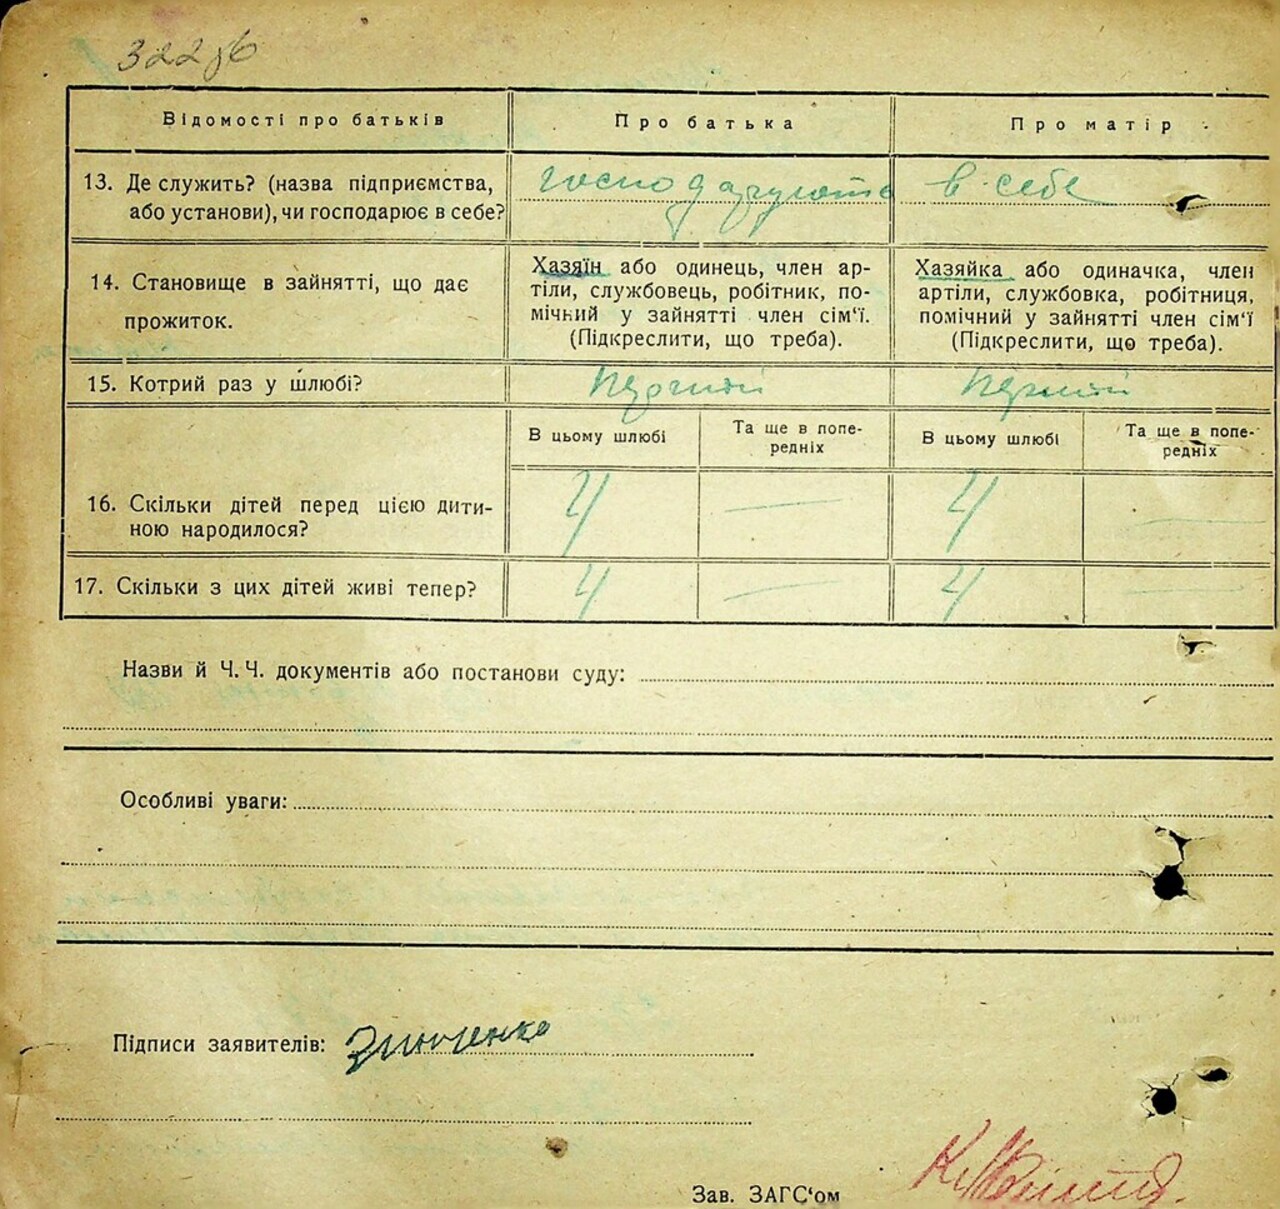 322зв
Відомості про батьків Про батька Про матір
13. Де служить? (назва підприємства, господарують в себе
або установи), чи господарює в себе?
14. Становище в зайнятті, що дає
прожиток.
Хазяїн або одинець, член ар-
тіли, службовець, робітник, по-
мічний у зайнятті член сім‘ї.
(Підкреслити, що треба).
Хазяйка або одиначка, член
артіли, службовка, робітниця,
помічний у зайнятті член сім‘ї
(Підкреслити, що треба).
15. Котрий раз у шлюбі? Перший Перший
В цьому шлюбі Та ще в попе-
редніх
В цьому шлюбі Та ще в попе-
редніх
16. Скільки дітей перед цією дити- 4 — 4 —
ною народилося?
17. Скільки з цих дітей живі тепер? 4 — 4 —
Назви й Ч. Ч. документів або постанови суду:
Особливі уваги:
Підписи заявителів: Зинченко
Зав. ЗАГС‘ом